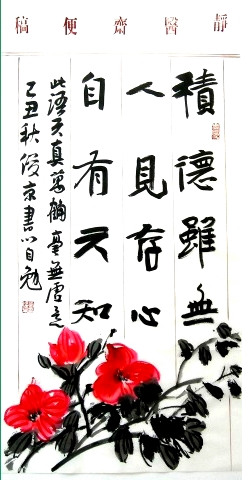 靜醫齋便稿
積德雖無
人見存心
自有天知
此語天真萬無虛意
丑秋俊京書以自勉